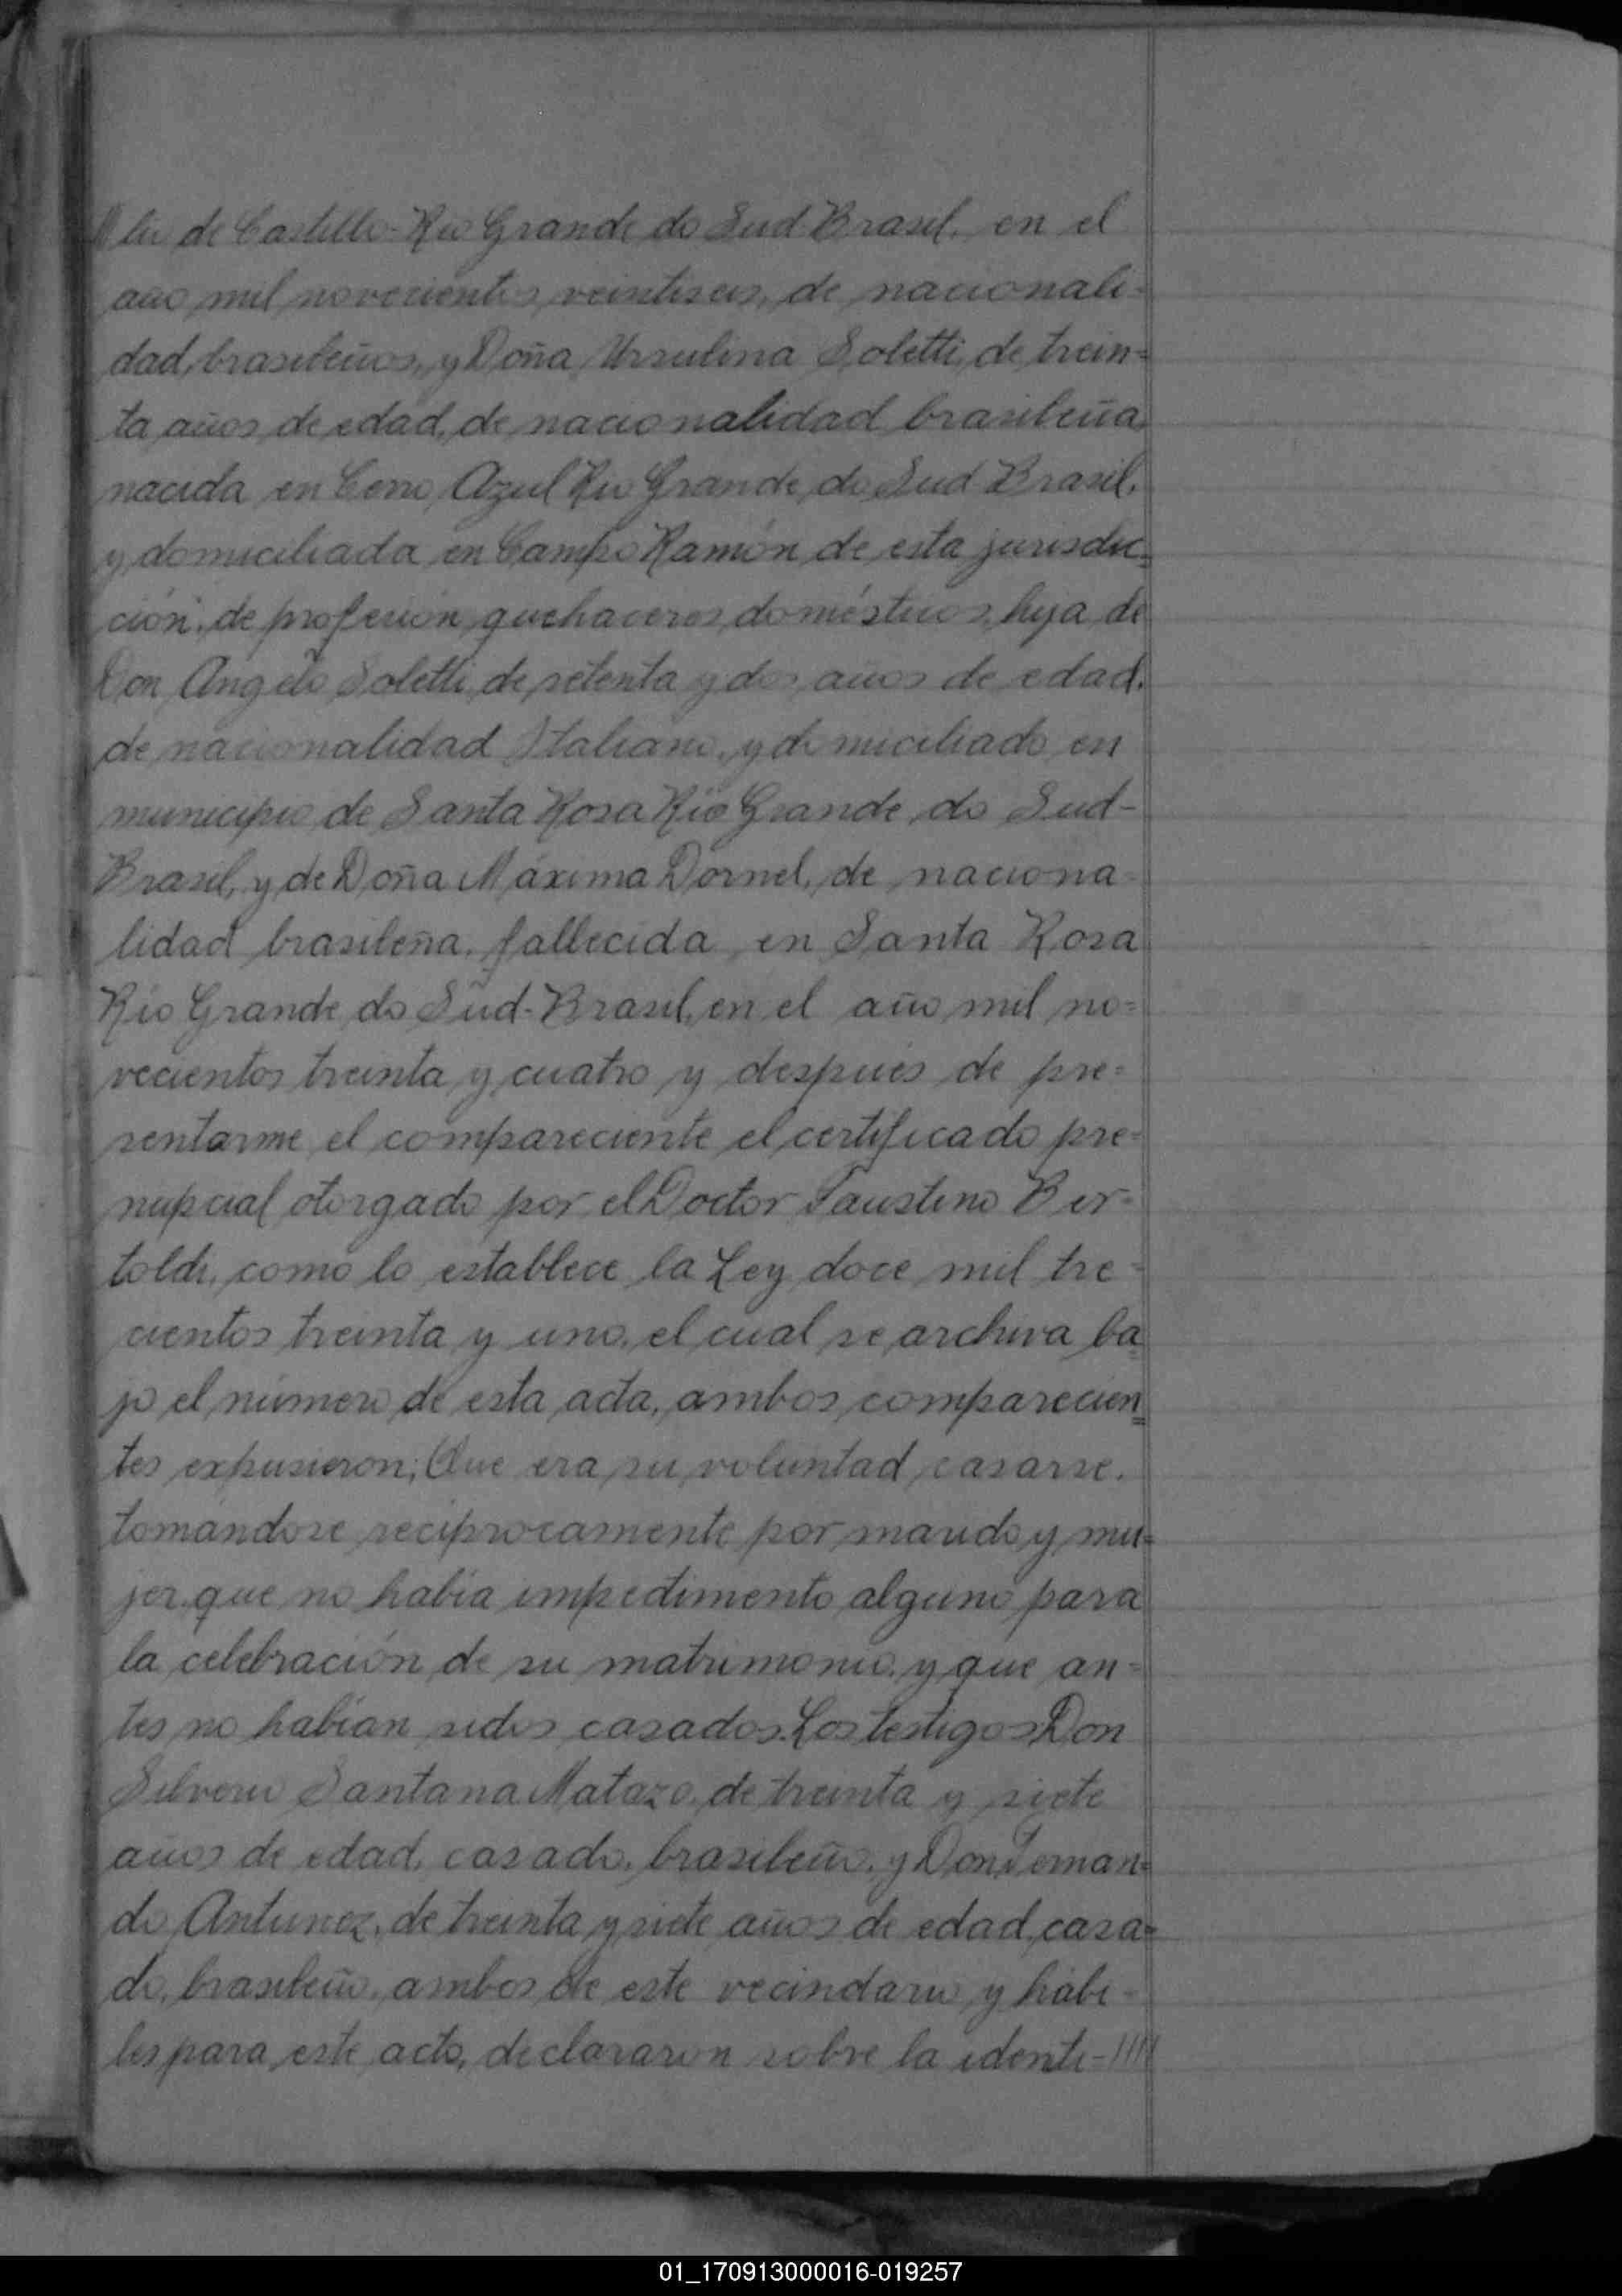 de Castillo-Rio Grande do Sud-Brasil, en el
año mil novecientos veintiseis, de nacionali=
dad, brasileños, y Doña Ursulina Soletti, de trein=
ta años de edad, de nacionalidad brasileña
nacida en Cerro Azul Rio Grande do Sud Brasil,
y domiciliada en Campo Ramón de esta jurisdic=
ción, de profesión quehaceres domésticos, hija de
Don Angelo Soletti, de setenta y dos años de edad,
de nacionalidad Italiano, y domiciliado en
municipio de Santa Rosa Río Grande do Sud-
Brasil, y de Doña Máxima Dornel, de naciona-
lidad brasileña, fallecida en Santa Rosa
Río Grande do Sud-Brasil, en el año mil no=
vecientos treinta y cuatro y después de pre=
sentarme el compareciente el certificado pre=
nupcial otorgado por el Doctor Faustino Ber=
toldi, como lo establece la Ley doce mil tre=
cientos treinta y uno, el cual se archiva ba
jo el número de esta acta, ambos comparecien=
tes expusieron; Que era su voluntad casarse,
tomándose recíprocamente por marido y mu=
jer, que no había impedimento alguno para
la celebración de su matrimonio, y que an=
tes no habían sidos casados. Los testigos Don
Silverio Santana Matazo, de treinta y siete
años de edad, casado, brasileño, y Don Fernan=
do Antunez, de treinta y siete años de edad, casa=
do, brasileño, ambos de este vecindario y hábi=
les para este acto, declararon sobre la identi-////
01_170913000016-019257